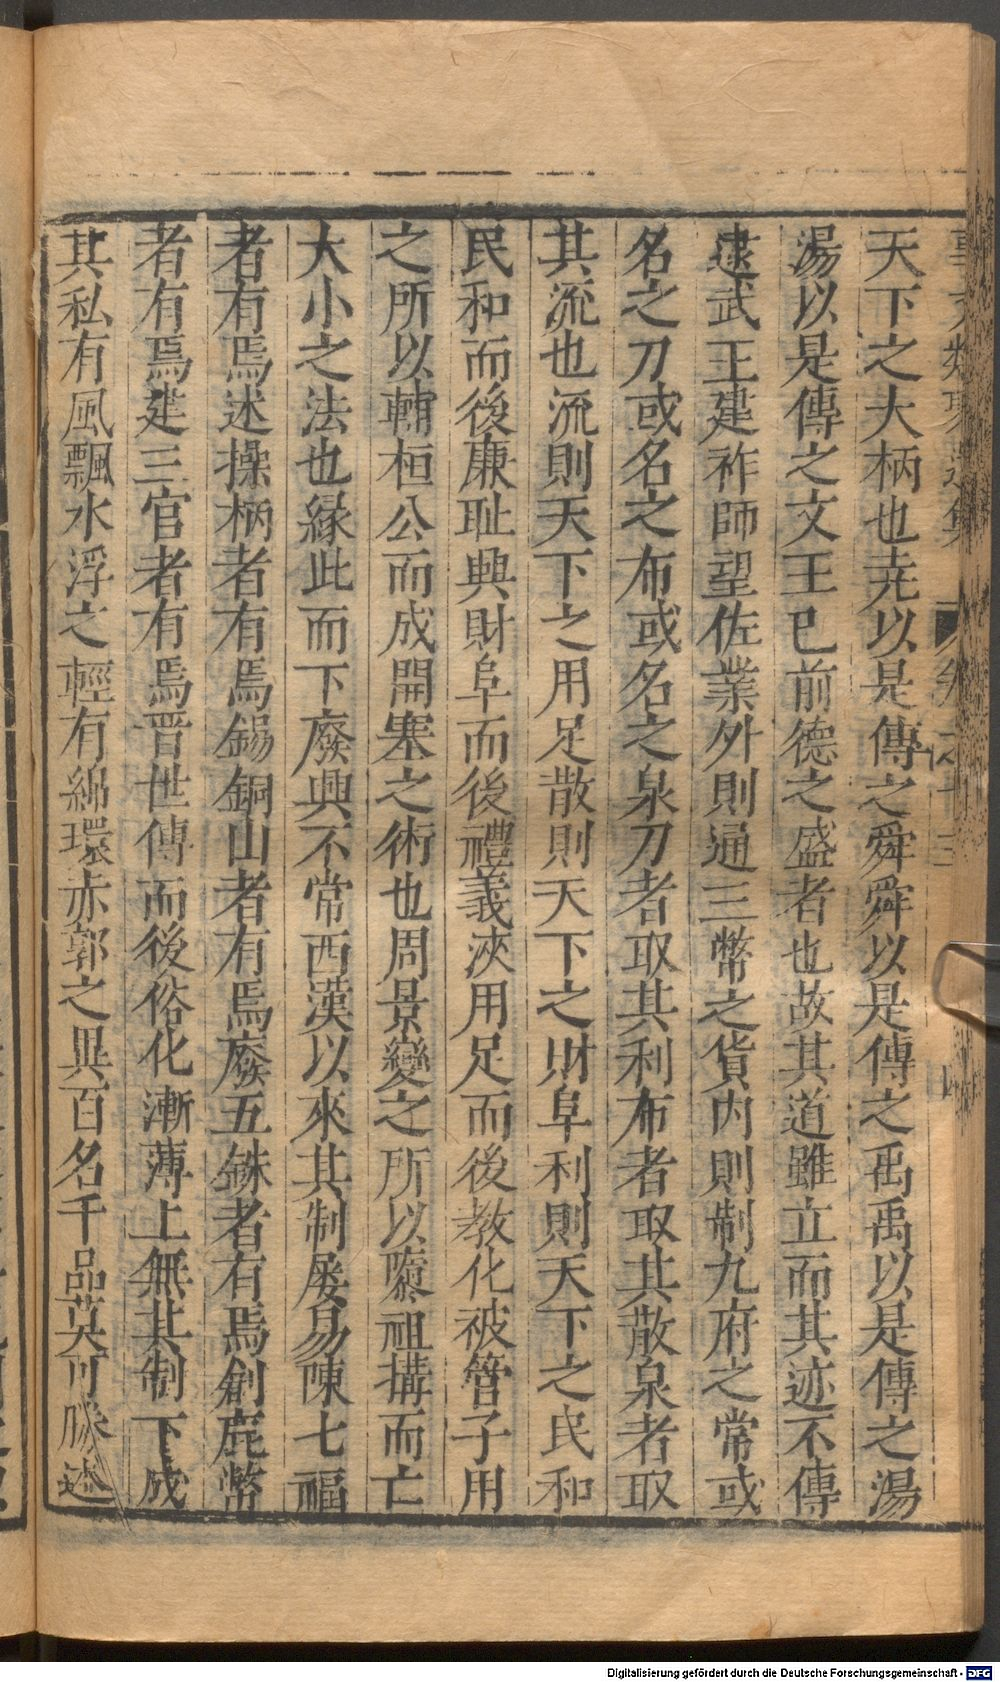 天下之大柄也堯以是傳之舜舜以是傳之禹禹以是傳之湯
湯以是傳之文王已前德之盛者也故其道雖立而其迹不傳
逮武王建祚師望佐業外則通三幣之貨内則制九府之常或
名之刀或名之布或名之泉刀者取其利布者取其散泉者取
其流也流則天下之用足散則天下之財阜利則天下之民和
民和而後廉耻興財阜而後禮義浹用足而後教化被管子用
之所以輔桓公而成開塞之術也周景變之所以隳祖搆而亡
大小之法也緣此而下廢興不常西漢以來其制屡易陳七福
者有焉述操柄者有焉錫銅山者有焉廢五銖者有焉創鹿幣
者有焉建三官者有焉晋世傳而後俗化漸薄上無其制下成
其私有風飄水浮之輕有綿環赤郭之異百名千品莫可勝述
Digitalisierung gefördert durch die Deutsche Forschungsgemeinschaft - DFG